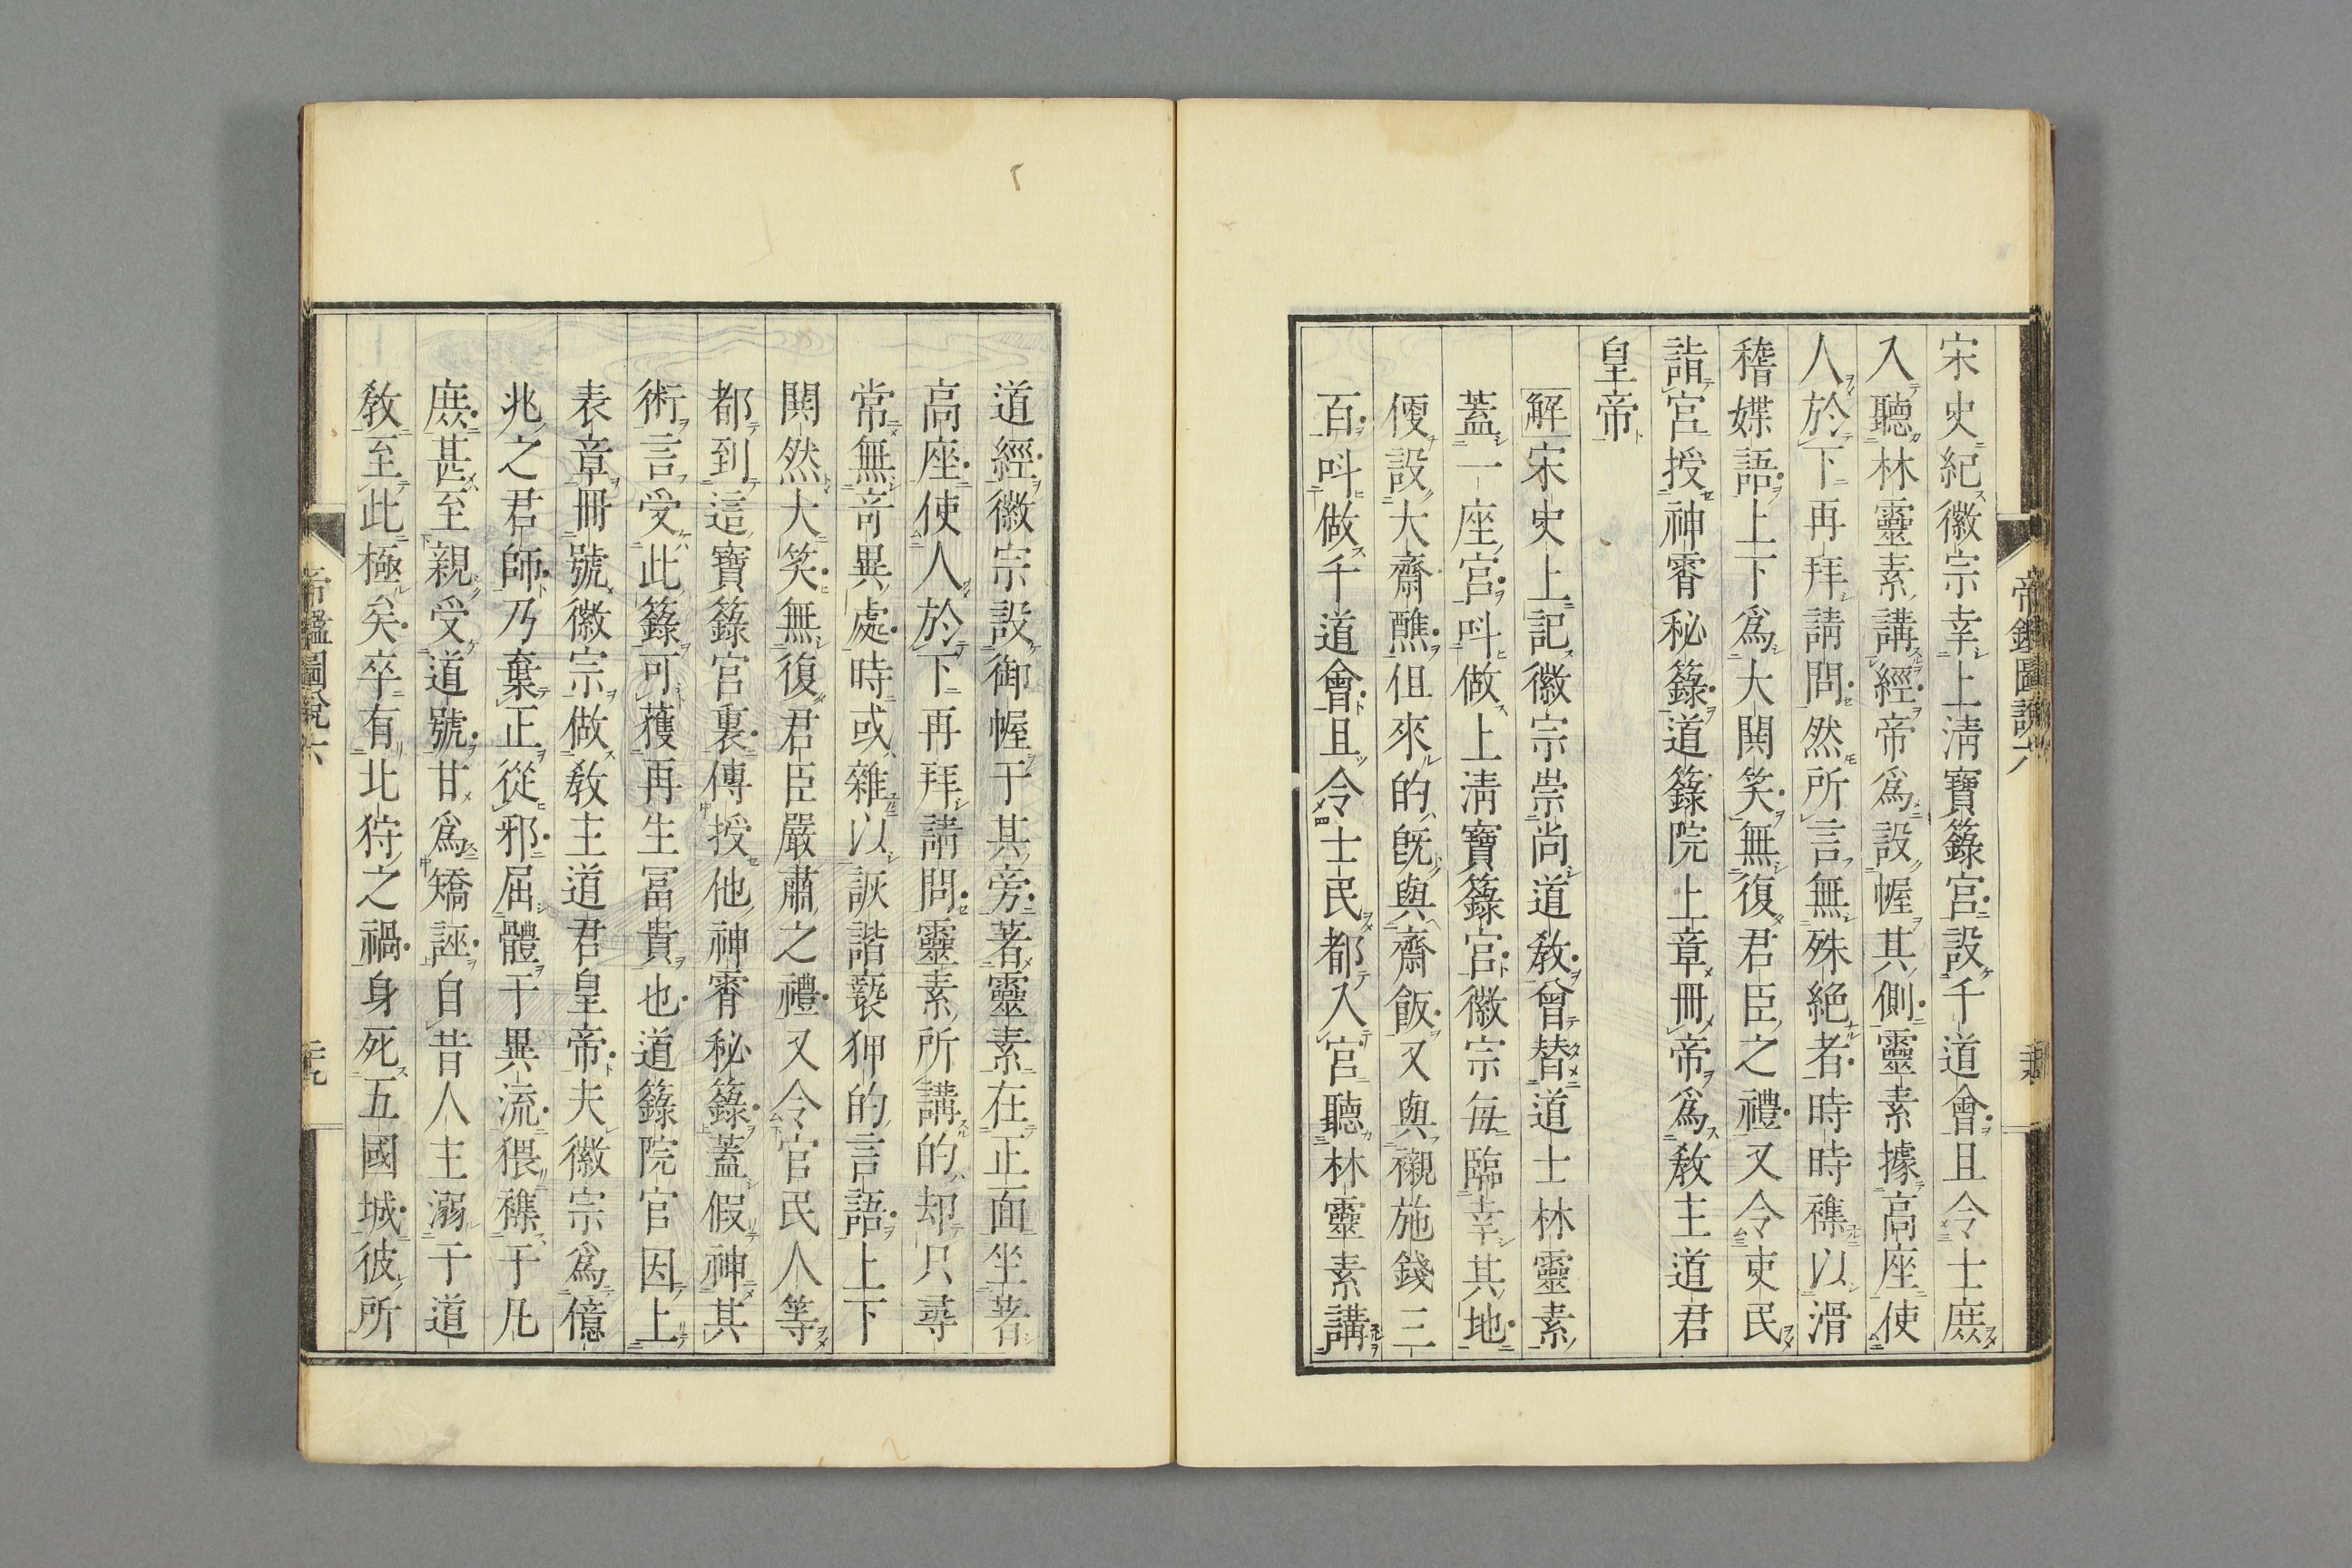 宋史紀徽宗幸上淸寶籙宮設千道會且令士庶
入聽林靈素講經帝爲設幄其側靈素據高座使
人於下再拜請問然所言無殊絶者時時襍以滑
稽媟語上下爲大鬨笑無復君臣之禮又令吏民
詣宮授神霄秘籙道籙院上章冊帝爲敎主道君
皇帝
解宋史上記徽宗崇尚道敎曾替道士林靈素
蓋一座宮呌做上淸寶籙宮徽宗每臨幸其地
便設大齋醮但來的旣與齋飯又與襯施錢三
百呌做千道會且令士民都入宮聽林靈素講
帝鑑圖說六
道經徽宗設御幄于其旁著靈素在正面坐著
高座使人於下再拜請問靈素所講的却只尋
常無奇異處時或雜以詼諧褻狎的言語上下
鬨然大笑無復君臣嚴肅之禮又令官民人等
都到這寶籙宮裏傳授他神霄秘籙蓋假神其
術言受此籙可獲再生冨貴也道籙院官因上
表章冊號徽宗做敎主道君皇帝夫徽宗爲億
兆之君師乃棄正從邪屈體于異流猥襍于凡
庶甚至親受道號甘爲矯誣自昔人主溺于道
敎至此極矣卒有北狩之禍身死五國城彼所
帝鑑圖說六